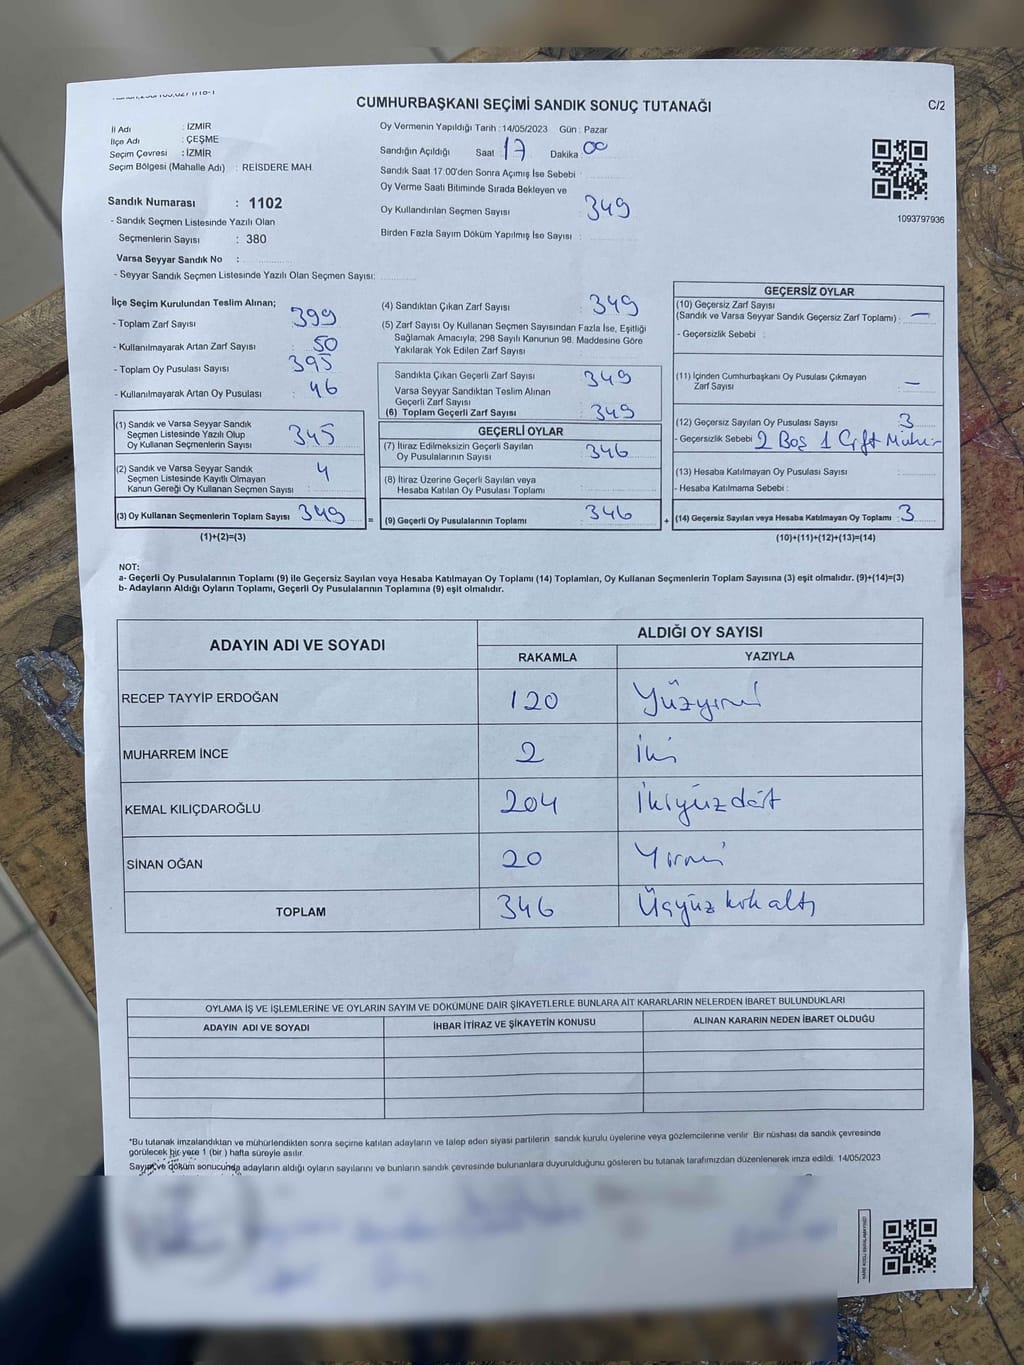 CUMHURBAŞKANI SEÇİMİ SANDIK SONUÇ TUTANAĞI
C/2
İl Adı : İZMİR
İlçe Adı : ÇEŞME
Seçim Çevresi : İZMİR
Seçim Bölgesi (Mahalle Adı) : REİSDERE MAH.
Oy Vermenin Yapıldığı Tarih : 14/05/2023 Gün : Pazar
Sandığın Açıldığı Saat 17 Dakika 00
Sandık Saat 17:00'den Sonra Açımış İse Sebebi :
Oy Verme Saati Bitiminde Sırada Bekleyen ve
Oy Kullandırılan Seçmen Sayısı : 349
Birden Fazla Sayım Döküm Yapılmış İse Sayısı :
1093797936
Sandık Numarası : 1102
- Sandık Seçmen Listesinde Yazılı Olan
Seçmenlerin Sayısı : 380
Varsa Seyyar Sandık No :
- Seyyar Sandık Seçmen Listesinde Yazılı Olan Seçmen Sayısı:
İlçe Seçim Kurulundan Teslim Alınan;
- Toplam Zarf Sayısı : 399
- Kullanılmayarak Artan Zarf Sayısı : 50
- Toplam Oy Pusulası Sayısı : 395
- Kullanılmayarak Artan Oy Pusulası : 46
(1) Sandık ve Varsa Seyyar Sandık
Seçmen Listesinde Yazılı Olup
Oy Kullanan Seçmenlerin Sayısı : 345
(2) Sandık ve Varsa Seyyar Sandık
Seçmen Listesinde Kayıtlı Olmayan
Kanun Gereği Oy Kullanan Seçmen Sayısı : 4
(3) Oy Kullanan Seçmenlerin Toplam Sayısı : 349
(1)+(2)=(3)
(4) Sandıktan Çıkan Zarf Sayısı : 349
(5) Zarf Sayısı Oy Kullanan Seçmen Sayısından Fazla İse, Eşitliği
Sağlamak Amacıyla, 298 Sayılı Kanunun 98. Maddesine Göre
Yakılarak Yok Edilen Zarf Sayısı :
Sandıkta Çıkan Geçerli Zarf Sayısı : 349
Varsa Seyyar Sandıktan Teslim Alınan
Geçerli Zarf Sayısı :
(6) Toplam Geçerli Zarf Sayısı : 349
GEÇERLİ OYLAR
(7) İtiraz Edilmeksizin Geçerli Sayılan
Oy Pusulalarının Sayısı : 346
(8) İtiraz Üzerine Geçerli Sayılan veya
Hesaba Katılan Oy Pusulası Toplamı :
= (9) Geçerli Oy Pusulalarının Toplamı : 346
GEÇERSİZ OYLAR
(10) Geçersiz Zarf Sayısı
(Sandık ve Varsa Seyyar Sandık Geçersiz Zarf Toplamı) : —
- Geçersizlik Sebebi :
(11) İçinden Cumhurbaşkanı Oy Pusulası Çıkmayan
Zarf Sayısı : —
(12) Geçersiz Sayılan Oy Pusulası Sayısı : 3
- Geçersizlik Sebebi : 2 Boş 1 Çift Mühür
(13) Hesaba Katılmayan Oy Pusulası Sayısı :
- Hesaba Katılmama Sebebi :
+ (14) Geçersiz Sayılan veya Hesaba Katılmayan Oy Toplamı : 3
(10)+(11)+(12)+(13)=(14)
NOT:
a- Geçerli Oy Pusulalarının Toplamı (9) ile Geçersiz Sayılan veya Hesaba Katılmayan Oy Toplamı (14) Toplamları, Oy Kullanan Seçmenlerin Toplam Sayısına (3) eşit olmalıdır. (9)+(14)=(3)
b- Adayların Aldığı Oyların Toplamı, Geçerli Oy Pusulalarının Toplamına (9) eşit olmalıdır.
ADAYIN ADI VE SOYADI ALDIĞI OY SAYISI
RAKAMLA YAZIYLA
RECEP TAYYİP ERDOĞAN 120 Yüzyirmi
MUHARREM İNCE 2 İki
KEMAL KILIÇDAROĞLU 204 İkiyüzdört
SİNAN OĞAN 20 Yirmi
TOPLAM 346 Üçyüz kırk altı
OYLAMA İŞ VE İŞLEMLERİNE VE OYLARIN SAYIM VE DÖKÜMÜNE DAİR ŞİKAYETLERLE BUNLARA AİT KARARLARIN NELERDEN İBARET BULUNDUKLARI
ADAYIN ADI VE SOYADI İHBAR İTİRAZ VE ŞİKAYETİN KONUSU ALINAN KARARIN NEDEN İBARET OLDUĞU
*Bu tutanak imzalandıktan ve mühürlendikten sonra seçime katılan adayların ve talep eden siyasi partilerin sandık kurulu üyelerine veya gözlemcilerine verilir. Bir nüshası da sandık çevresinde
görülecek bir yere 1 (bir ) hafta süreyle asılır.
Sayım ve döküm sonucunda adayların aldığı oyların sayılarını ve bunların sandık çevresinde bulunanlara duyurulduğunu gösteren bu tutanak tarafımızdan düzenlenerek imza edildi. 14/05/2023